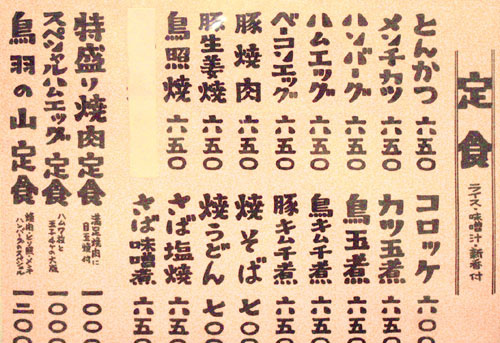 定食
ライス・味噌汁・新香付
とんかつ 六五〇
メンチカツ 六五〇
ハンバーグ 六五〇
ハムエッグ 六五〇
ベーコンエッグ 六五〇
豚焼肉 六五〇
豚生姜焼 六五〇
鳥照焼 六五〇
コロッケ 六〇〇
カツ玉煮 六五〇
鳥玉煮 六五〇
鳥キムチ煮 六五〇
豚キムチ煮 六五〇
焼そば 七〇〇
焼うどん 七〇〇
さば塩焼 六五〇
さば味噌煮 六五〇
特盛り焼肉定食
満足焼肉に
目玉焼付
一〇〇〇
スペシャルハムエッグ定食
ハム7枚と
玉子4ケの大版
一〇〇〇
鳥羽の山定食
焼肉・とり照・メンチ
ハンバーグのスペシャル
一三〇〇